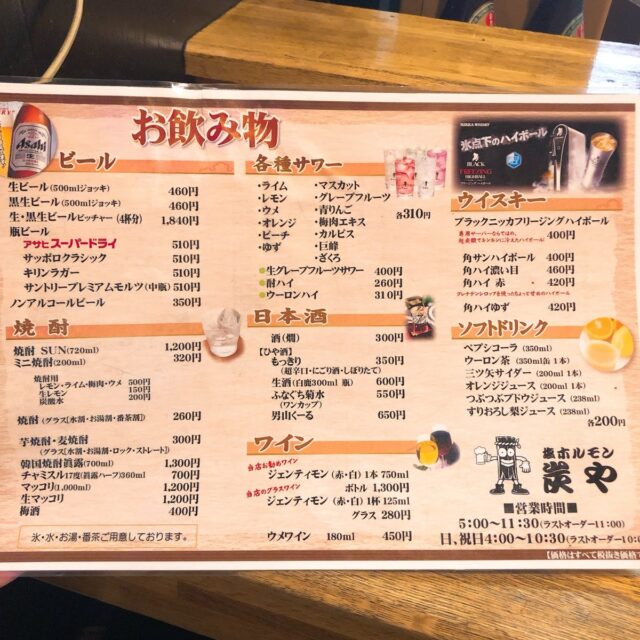 お飲み物
Asahi
ビール
生ビール(500mlジョッキ) 460円
黒生ビール(500mlジョッキ) 460円
生・黒生ビールピッチャー(4杯分) 1,840円
瓶ビール
アサヒスーパードライ 510円
サッポロクラシック 510円
キリンラガー 510円
サントリープレミアムモルツ(中瓶) 510円
ノンアルコールビール 350円
焼酎
焼酎 SUN(720ml) 1,200円
ミニ焼酎(200ml) 320円
焼酎用
レモン・ライム・梅肉・ウメ 500円
生レモン 150円
炭酸水 200円
焼酎(グラス[水割・お湯割・番茶割]) 260円
芋焼酎・麦焼酎 300円
(グラス[水割・お湯割・ロック・ストレート])
韓国焼酎眞露(700ml) 1,300円
チャミスル17度(眞露ハーフ)360ml 700円
マッコリ(1,000ml) 1,200円
生マッコリ 1,200円
梅酒 400円
氷・水・お湯・番茶ご用意しております。
各種サワー
・ライム ・マスカット
・レモン ・グレープフルーツ
・ウメ ・青りんご
・オレンジ ・梅肉エキス
・ピーチ ・カルピス
・ゆず ・巨峰
・ざくろ
各310円
●生グレープフルーツサワー 400円
●酎ハイ 260円
●ウーロンハイ 310円
日本酒
酒(燗) 300円
【ひや酒】
もっきり 350円
(超辛口・にごり酒・しぼりたて)
生酒(白鹿300ml 瓶) 600円
ふなぐち菊水 550円
(ワンカップ)
男山ぐーる 650円
ワイン
当店お勧めワイン
ジェンティモン(赤・白)1本 750ml
ボトル 1,300円
当店のグラスワイン
ジェンティモン(赤・白)1杯 125ml
グラス 280円
ウメワイン 180ml 450円
NIKKA WHISKY
氷点下のハイボール
BLACK
FREEZING
HIGHBALL
ウイスキー
ブラックニッカフリージングハイボール
400円
角サンハイボール 400円
角ハイ濃い目 460円
角ハイ 赤 ・ 420円
グレナデンシロップを使ったちょっと甘めのハイボール
角ハイゆず 420円
ソフトドリンク
ペプシコーラ(350ml)
ウーロン茶 (350ml缶 1本)
三ツ矢サイダー(200ml 1本)
オレンジジュース(200ml 1本)
つぶつぶブドウジュース(238ml)
すりおろし梨ジュース(238ml)
各200円
炭ホルモン
炭や
■営業時間■
5:00〜11:30(ラストオーダー11:00)
日、祝日4:00〜10:30(ラストオーダー10:0
【価格はすべて税抜き価格で